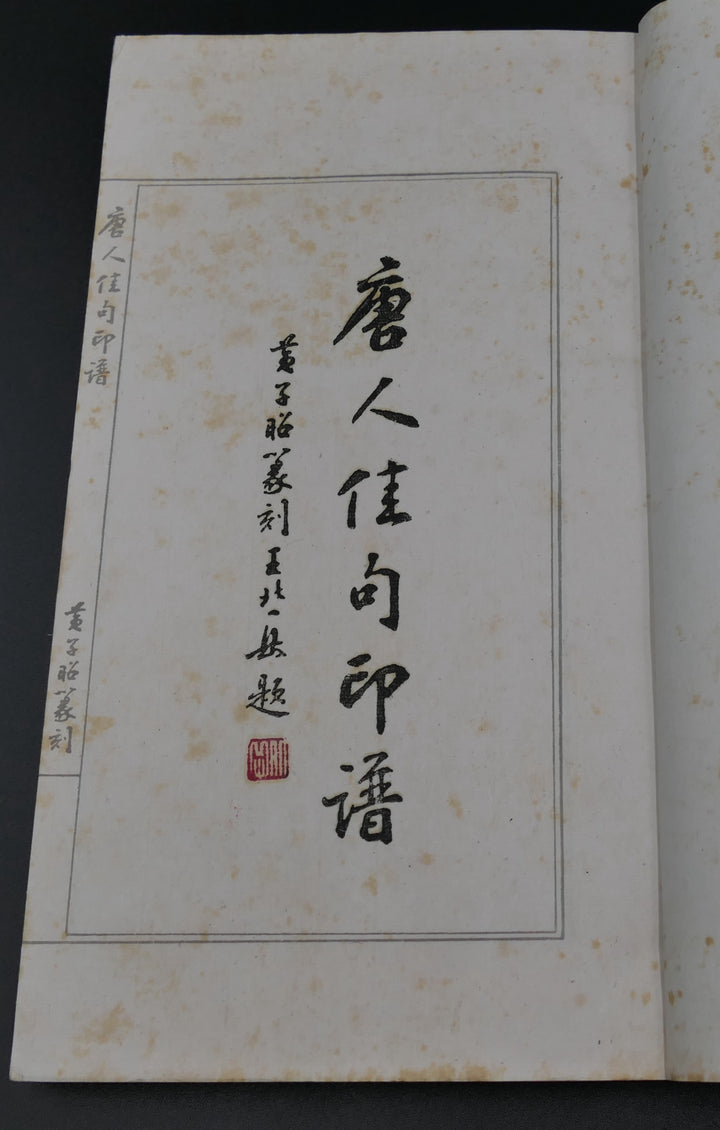 唐人佳句印譜
黄子昭篆刻王北岳題
唐人佳句印譜
黄子昭篆刻